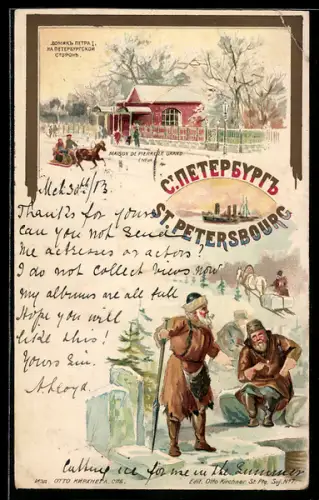 ДОМИКЪ ПЕТРА I.
НА ПЕТЕРБУРГСКОЙ
СТОРОНѢ.
MAISON DE PIERRE LE GRAND
С. ПЕТЕРБУРГЪ
ST. PETERSBOURG
Oct 30th/03
Thanks for yours
can you not send
me actresses or actors?
I do not collect views now
my albums are all full
Hope you will
like this!
Yours Sin.
A Lloyd.
Cutting ice for me in the Summer
ОТТО КИРХНЕРЪ. СПБ.
Edit. Otto Kirchner. St. Pbg.